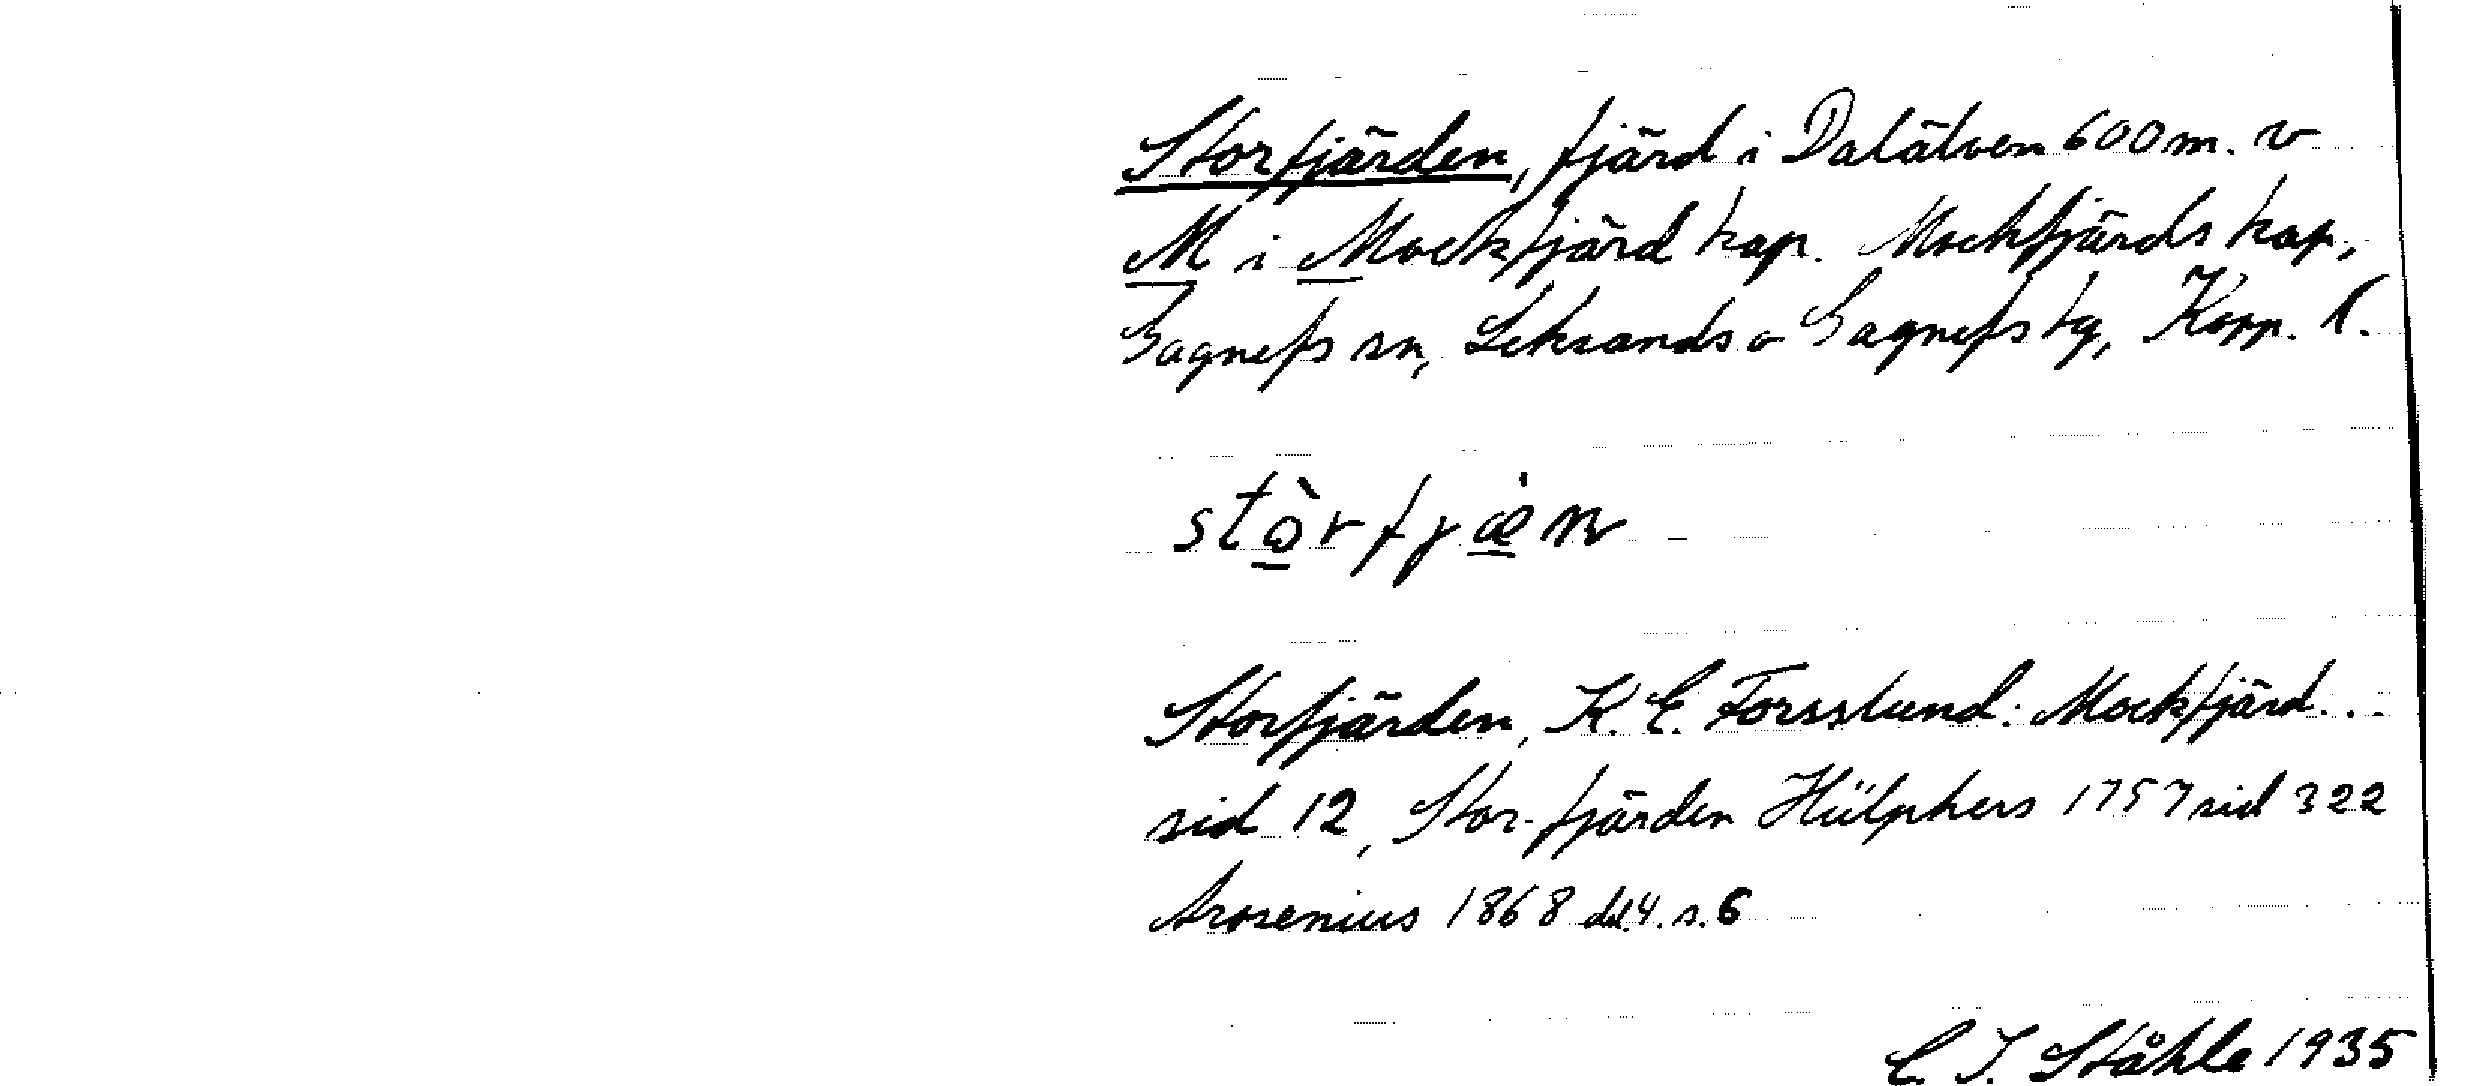 Storfjärden, fjärd i Dalälven 600 m. v
M i Mockfjärd kap. Mockfjärds kap,
Gagnefs sn, Leksands o Gagnefs tg, Kopp. l.
stò̱rfjæ̱̇n
Storfjärden, K. E. Forsslund: Mockfjärd...
sid 12, Stor-fjärden Hülphers 1757 sid 322
Arosenius 1868 del.4. s.6
C. I. Ståhle 1935